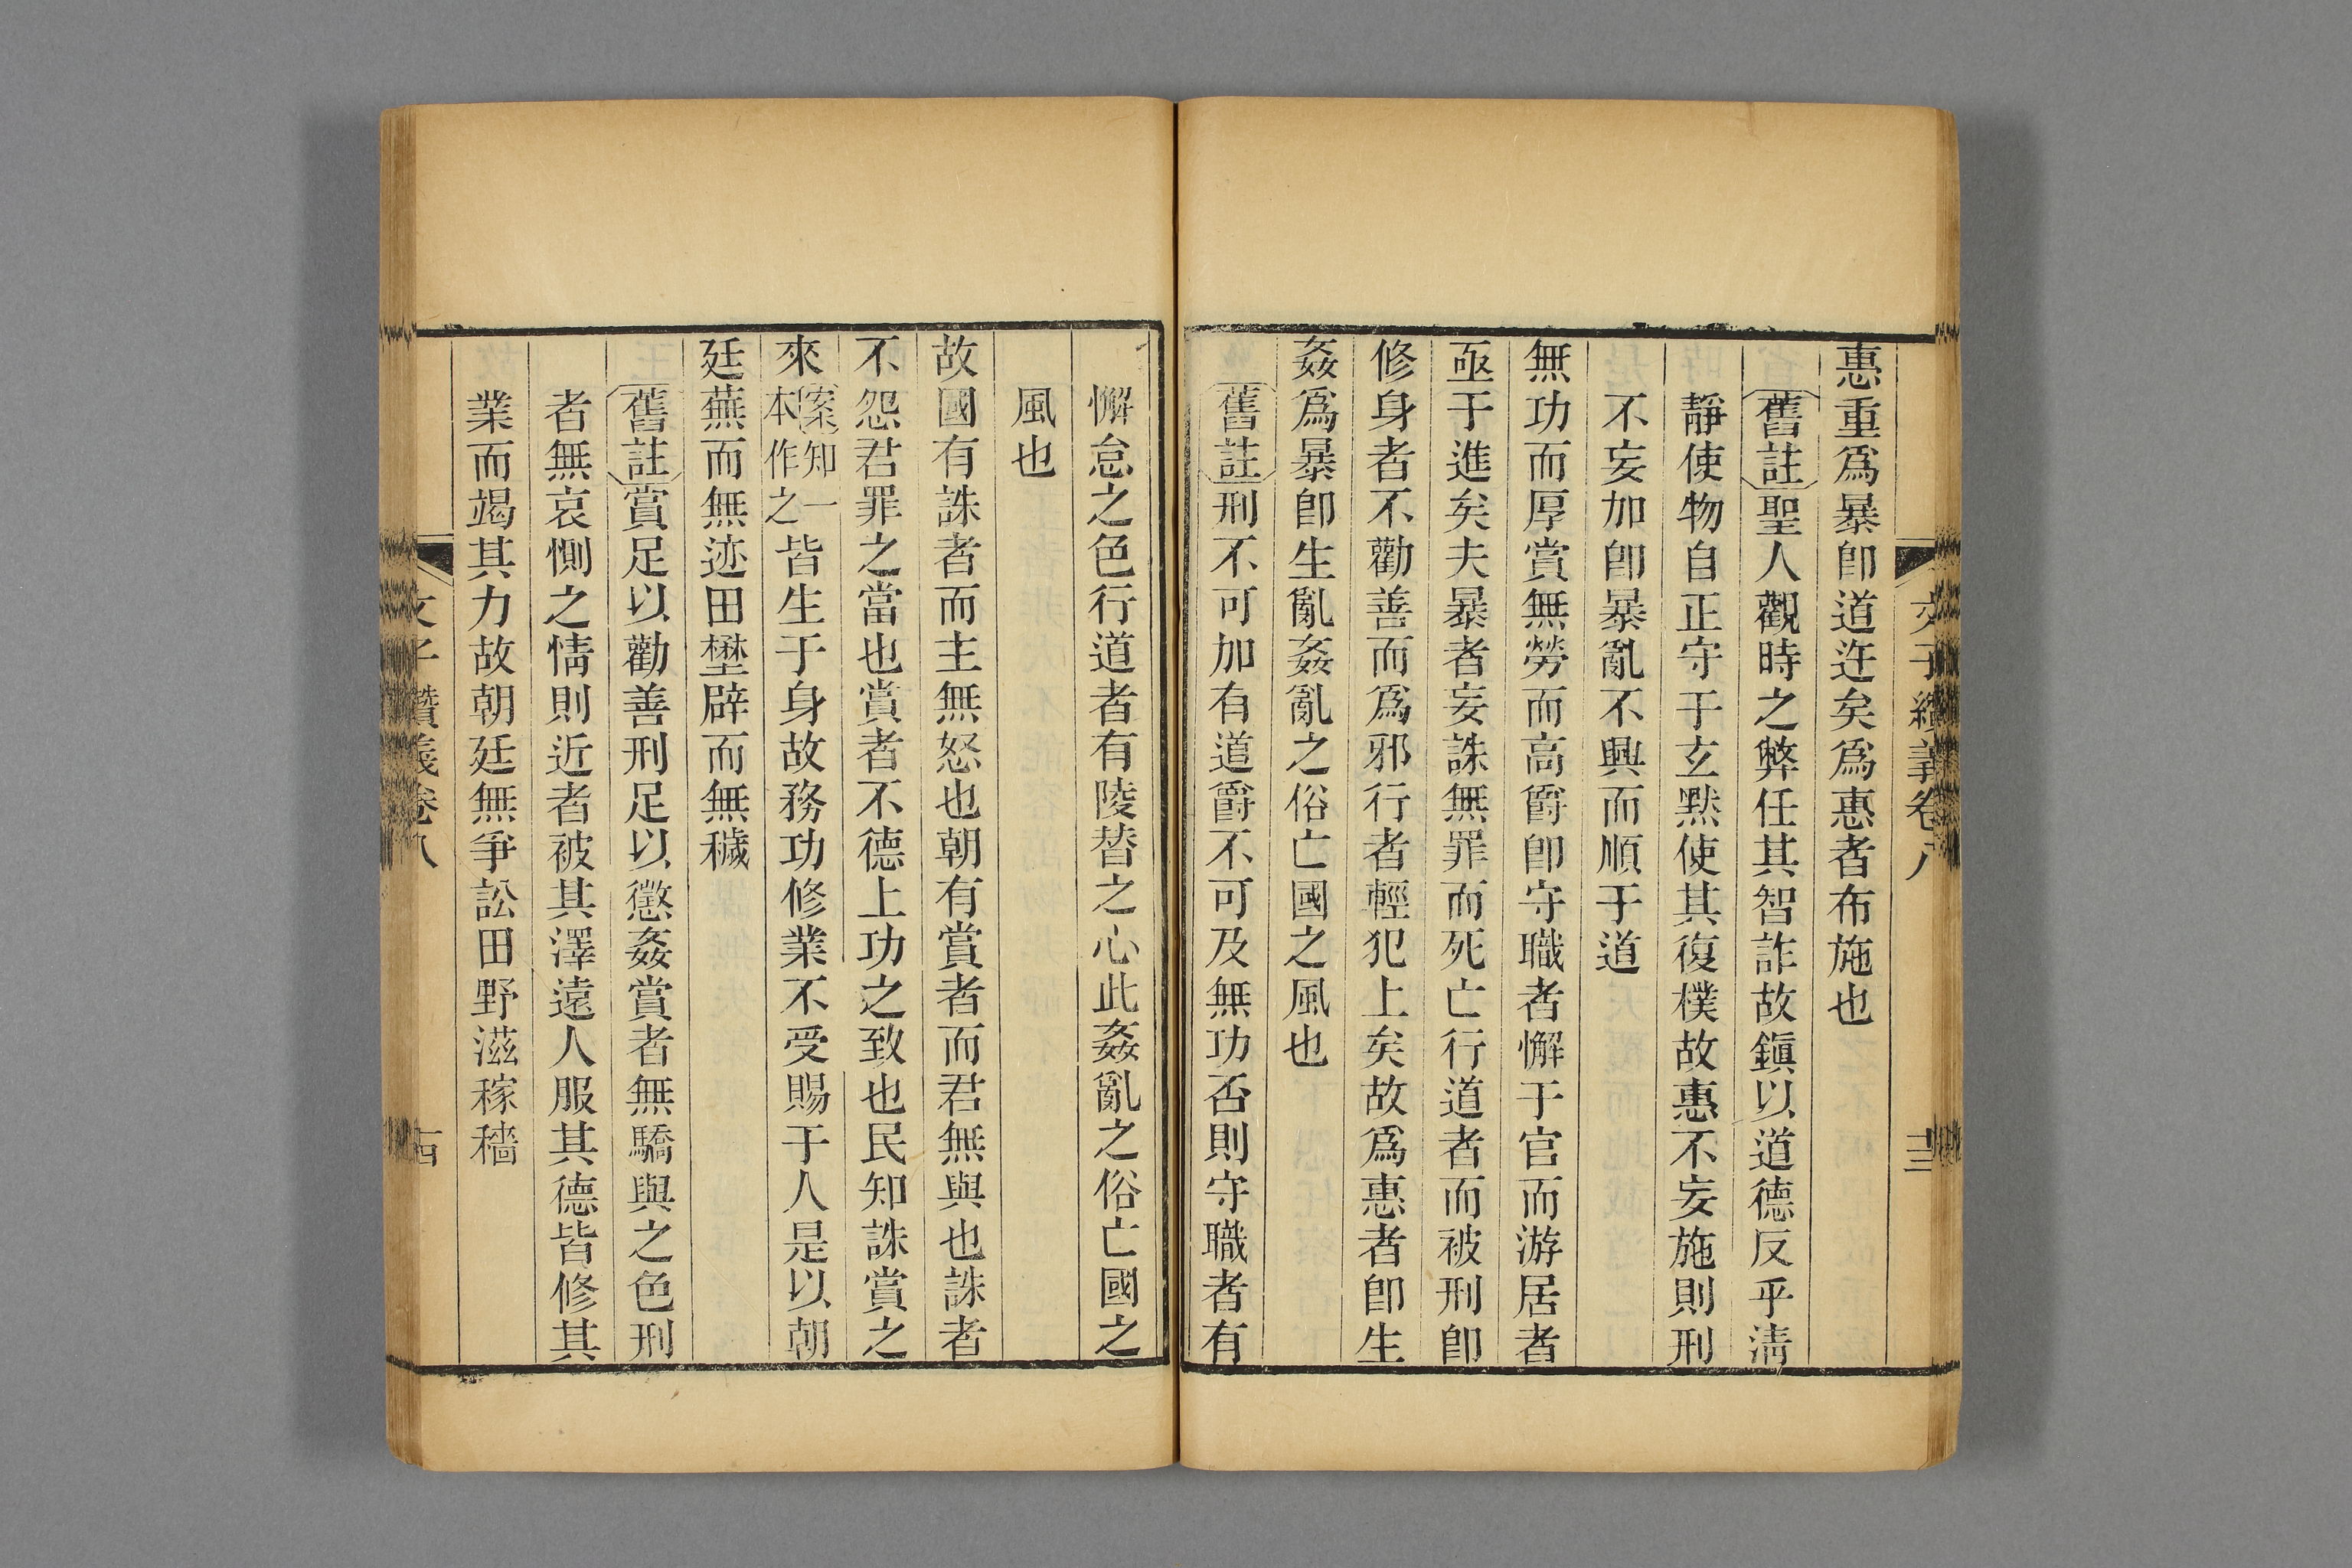 文子纘義卷八
十三
惠重爲暴卽道迕矣爲惠者布施也
舊註聖人觀時之弊任其智詐故鎭以道德反乎淸
靜使物自正守于玄默使其復樸故惠不妄施則刑
不妄加卽暴亂不興而順于道
無功而厚賞無勞而高爵卽守職者懈于官而游居者
亟于進矣夫暴者妄誅無罪而死亡行道者而被刑卽
修身者不勸善而爲邪行者輕犯上矣故爲惠者卽生
姦爲暴卽生亂姦亂之俗亡國之風也
舊註刑不可加有道爵不可及無功否則守職者有
懈怠之色行道者有陵替之心此姦亂之俗亡國之
風也
故國有誅者而主無怒也朝有賞者而君無與也誅者
不怨君罪之當也賞者不德上功之致也民知誅賞之
來案知一本作之皆生于身故務功修業不受賜于人是以朝
廷蕪而無迹田壄辟而無穢
舊註賞足以勸善刑足以懲姦賞者無驕與之色刑
者無哀惻之情則近者被其澤遠人服其德皆修其
業而竭其力故朝廷無爭訟田野滋稼穡
文子纘義卷八
十四